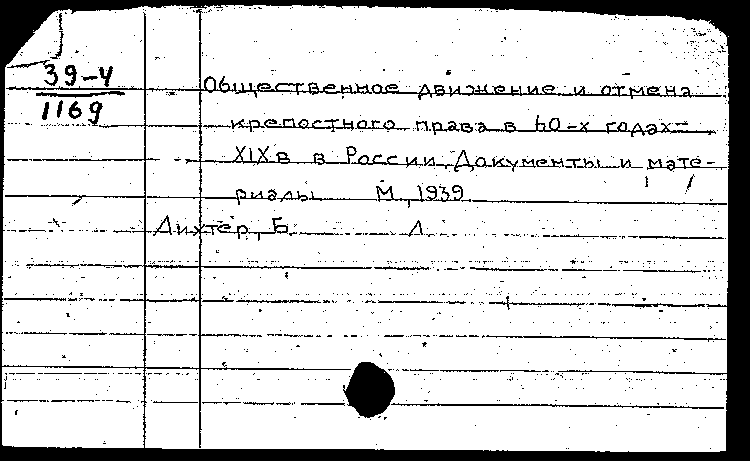 39-4
1169
Общественное движение и отмена
крепостного права в 60-х годах
XIX в в России. Документы и мате-
риалы М., 1939
Лихтер, Б. Л.